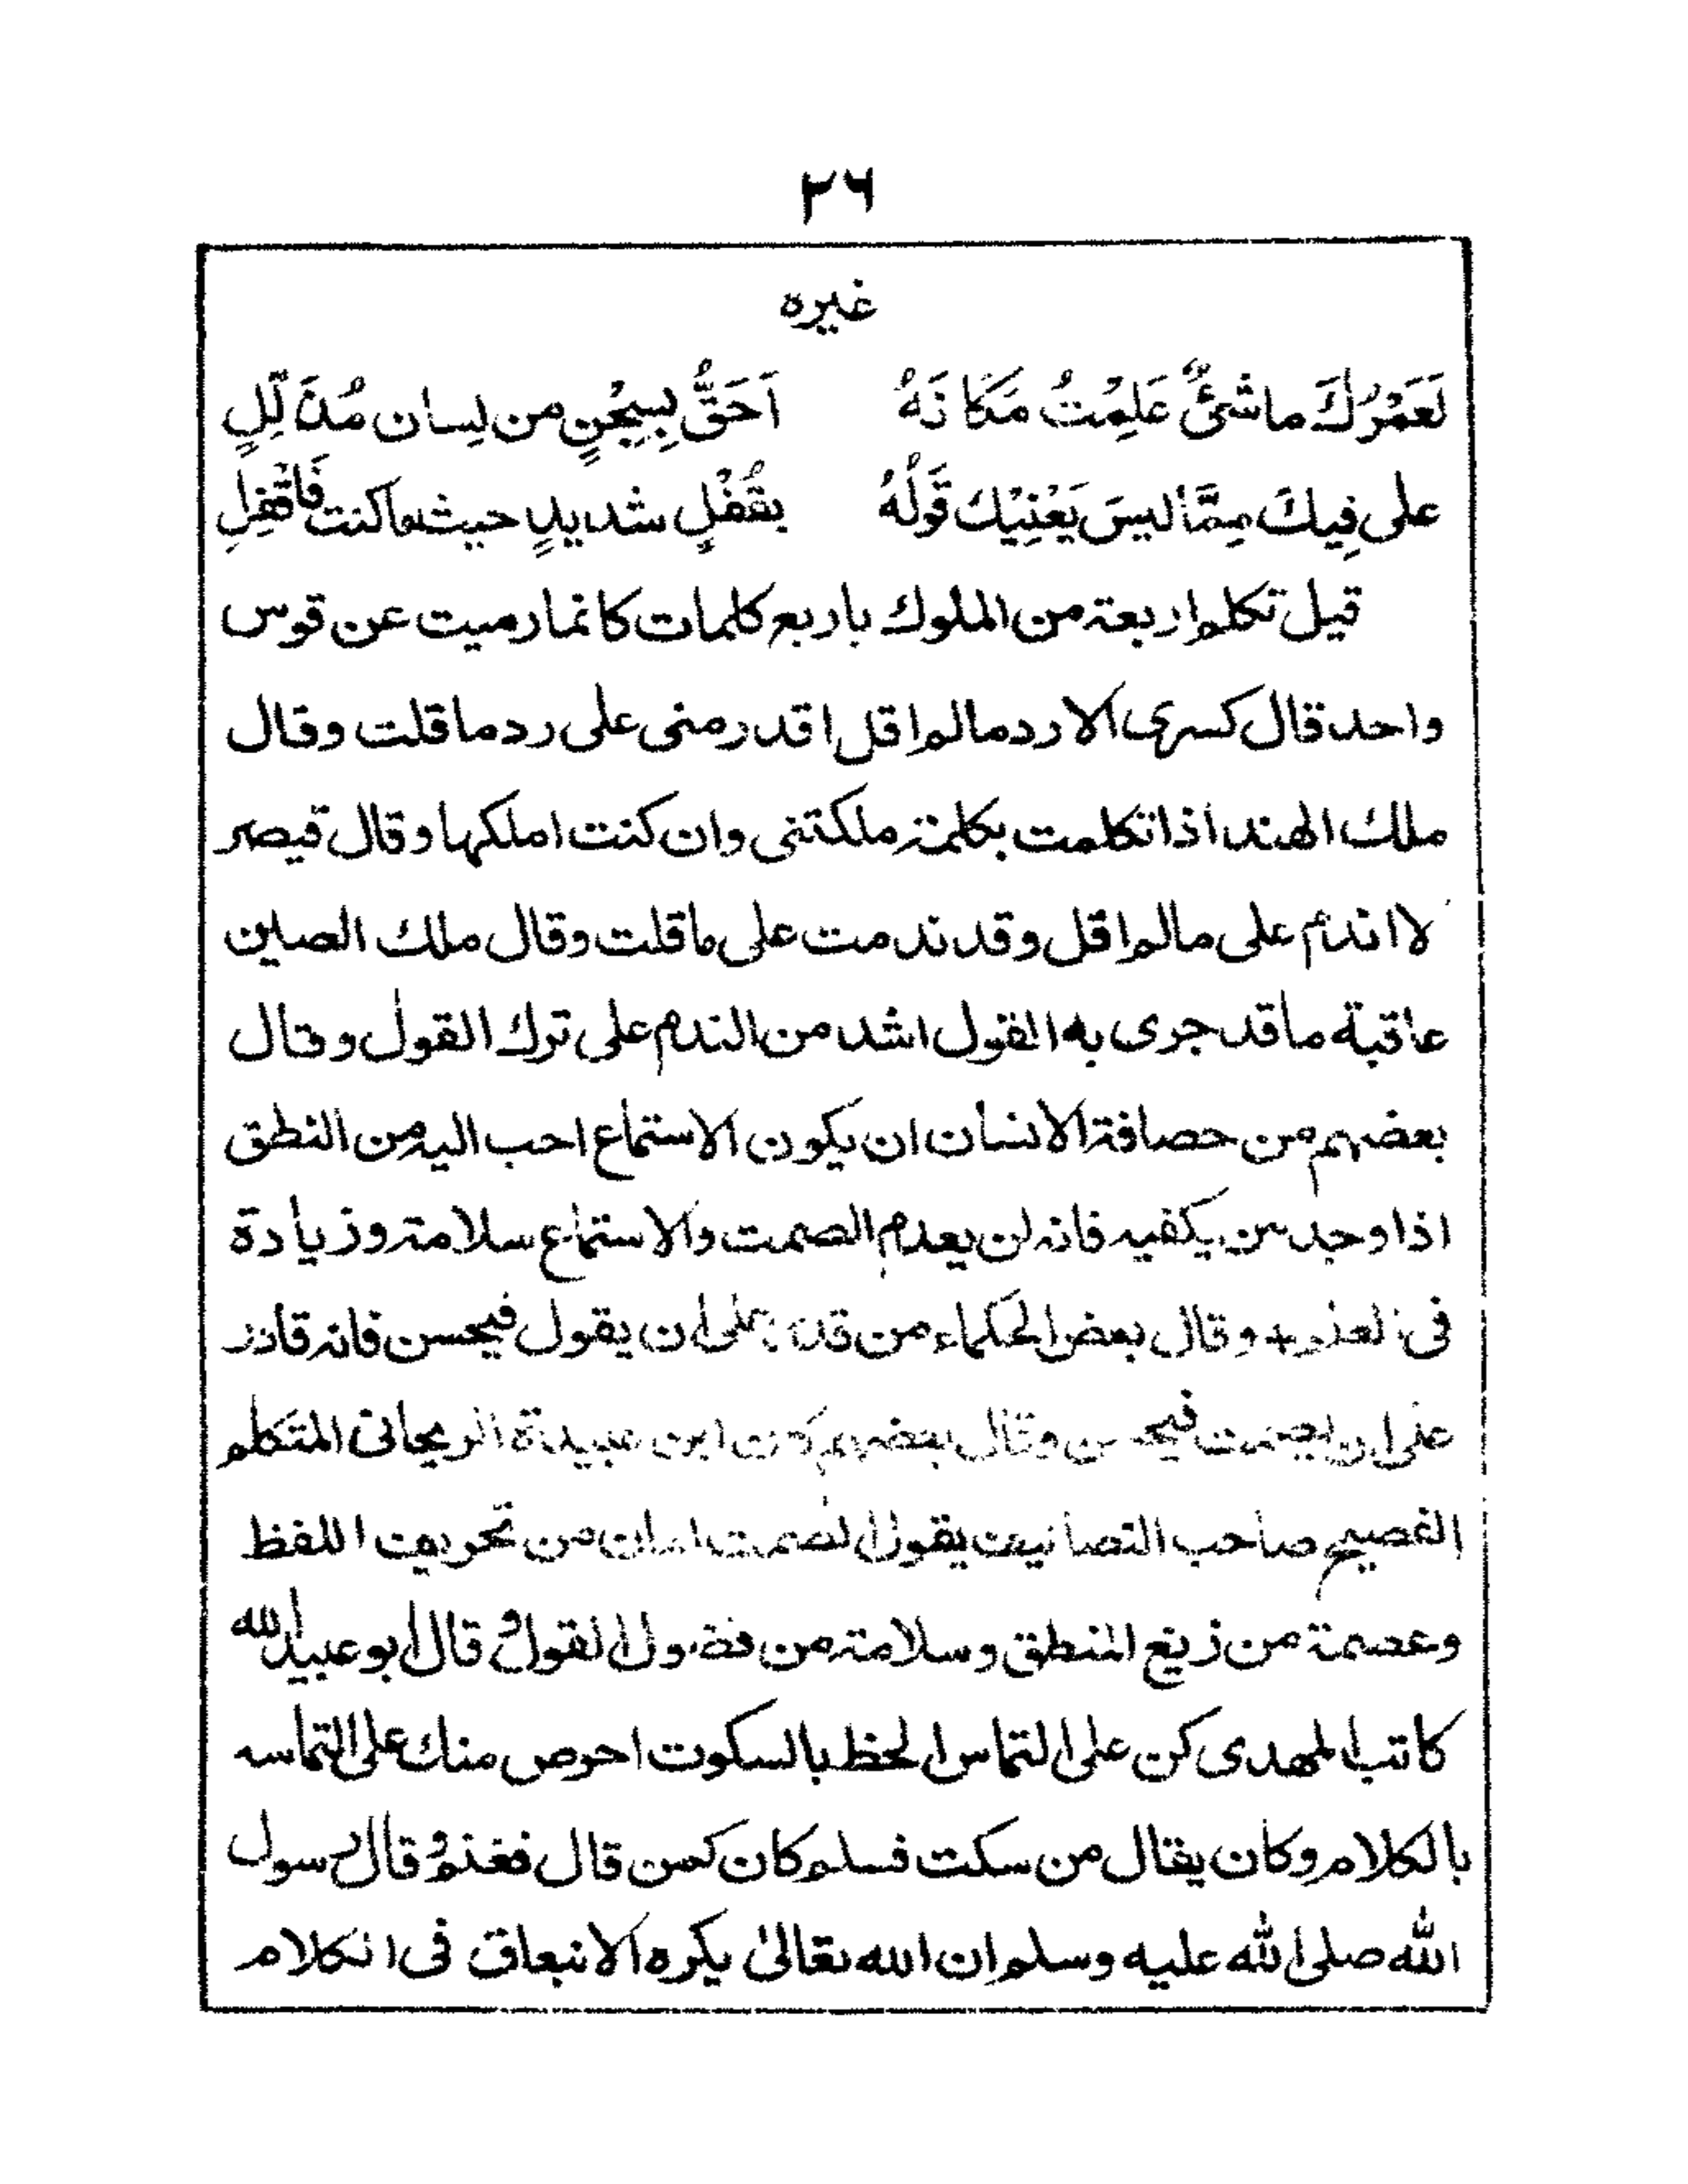 ٢٦
غيره
لَعَمْرُكَ ماشئٌ عَلِمْتُ مَكَانَهُ اَحَقُّ بِسِجْنٍ من لِسان مُذَلَّلِ
على فِيكَ مِمَّا ليسَ يَعْنِيْكَ قَولُهُ بقُفْلٍ شديدٍ حيث ما كنت فَاقْفِلِ
قيل تكلم اربعة من الملوك باربع كلمات كانما رميت عن قوس
واحد قال كسرى الا رد ما لم اقل اقدر منى على رد ما قلت وقال
ملك الهند اذا تكلمت بكلمة ملكتنى وان كنت املكها وقال قيصر
لا اندم على ما لم اقل وقد ندمت على ما قلت وقال ملك الصين
عاقبة ما قد جرى به القول اشد من الندم على ترك القول وقال
بعضهم من حصافة الانسان ان يكون الاستماع احب اليه من النطق
اذا وجد من يكفيه فانه لن يعدم الصمت والاستماع سلامة وزيادة
فى وقال بعض الحكماء من قدر على ان يقول فيحسن فانه قادر
على ان يصمت فيحسن وقال بعضهم كان ابن عبيدة الريحانى المتكلم
الفصيح صاحب التصانيف يقول الصمت امان من تحريف اللفظ
وعصمة من زيغ المنطق وسلامة من فضول القول و قال ابو عبيد الله
كاتب المهدى كن على التماس الحظ بالسكوت احرص منك على التماسه
بالكلام وكان يقال من سكت فسلم كان كمن قال فغنم و قال رسول
الله صلى الله عليه وسلم ان الله تعالىٰ يكره الانبعاق فى الكلام